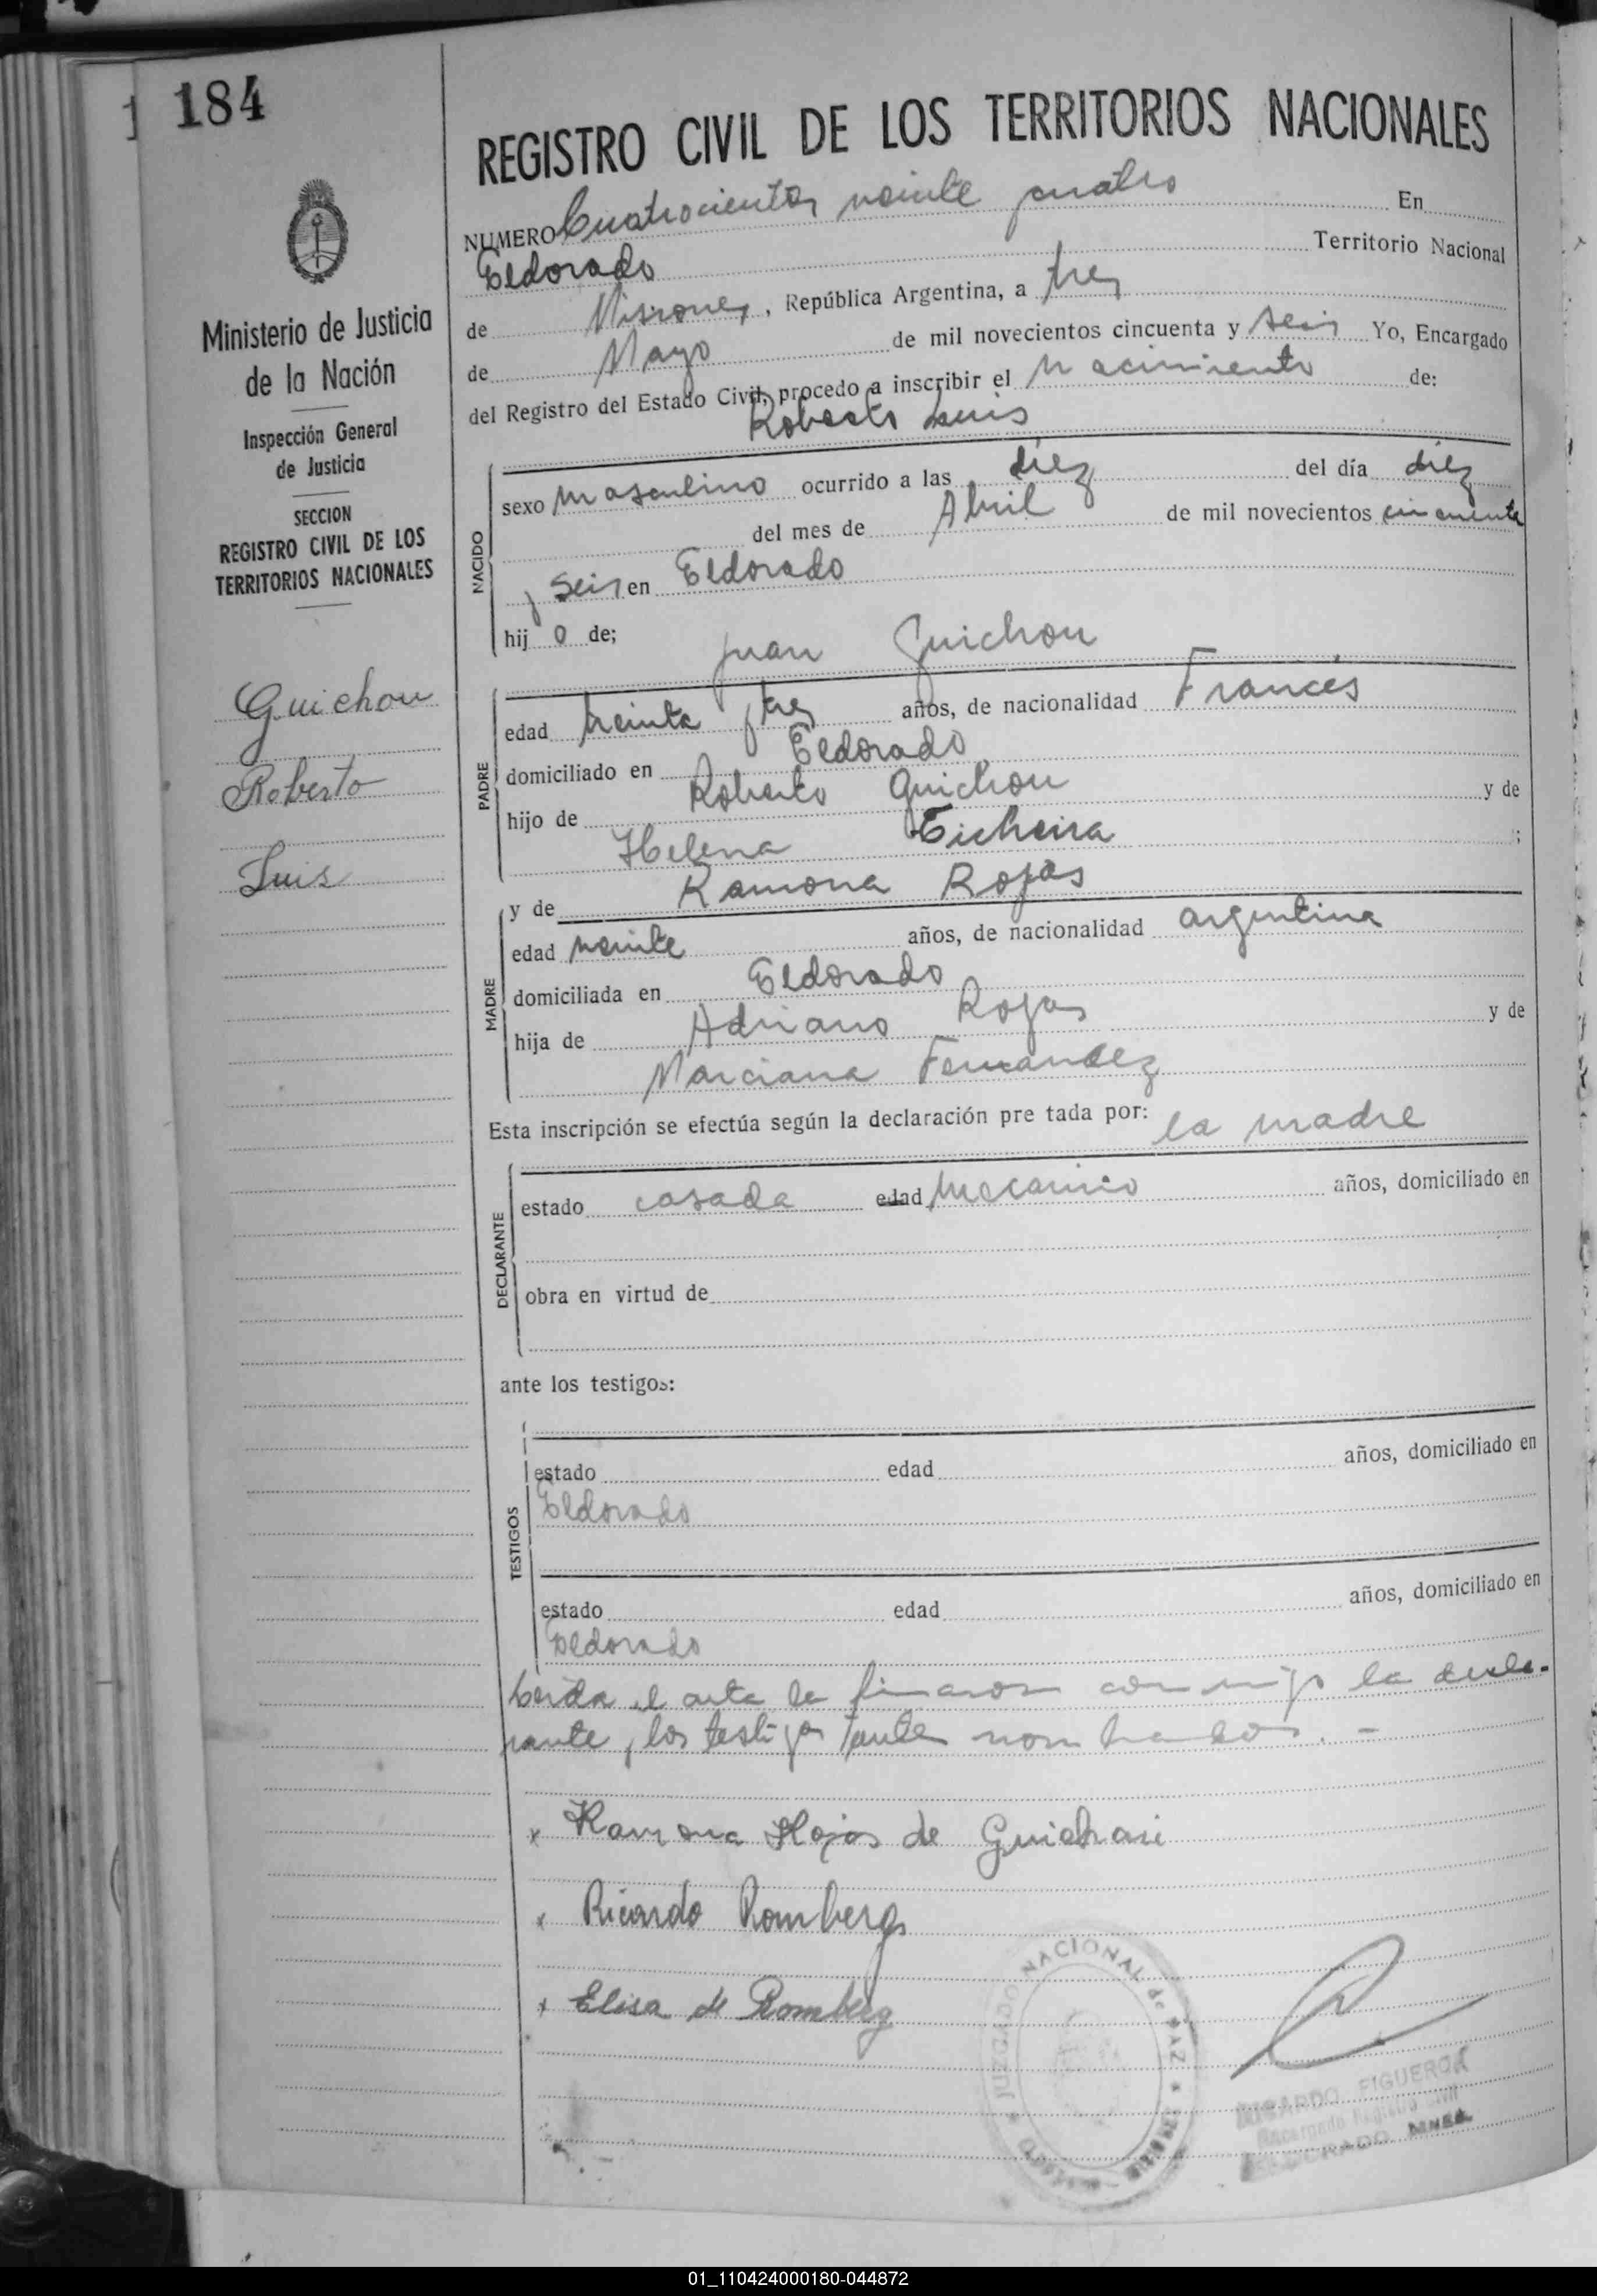 184
REGISTRO CIVIL DE LOS TERRITORIOS NACIONALES
Ministerio de Justicia
de la Nación
Inspección General
de Justicia
SECCION
REGISTRO CIVIL DE LOS
TERRITORIOS NACIONALES
Guichou
Roberto
Luis
NUMERO Cuatrocientos veinte y cuatro En
Eldorado Territorio Nacional
de Misiones, República Argentina, a tres
de Mayo de mil novecientos cincuenta y seis Yo, Encargado
del Registro del Estado Civil, procedo a inscribir el nacimiento de:
Roberto Luis
NACIDO
sexo masculino ocurrido a las diez del día diez
del mes de Abril de mil novecientos cincuenta
y seis en Eldorado
hij o de; Juan Guichou
PADRE
edad treinta y tres años, de nacionalidad Francés
domiciliado en Eldorado
hijo de Roberto Guichou y de
Helena ;
y de Ramona Rojas
MADRE
edad veinte años, de nacionalidad argentina
domiciliada en Eldorado
hija de Adriano Rojas y de
Marciana Fernandez
Esta inscripción se efectúa según la declaración pre tada por: la madre
DECLARANTE
estado casada edad mecanico años, domiciliado en
obra en virtud de
ante los testigos:
TESTIGOS
estado edad años, domiciliado en
Eldorado
estado edad años, domiciliado en
Eldorado
Leida el acta la firmaron conmigo la decla-
rante y los testigos antes nombrados. -
x Ramona Rojas de
x Ricardo Romberg
x Elisa de Romberg
JUZGADO NACIONAL de PAZ
RICARDO FIGUEROA
Encargado Registro Civil
ELDORADO MNES.
01_110424000180-044872